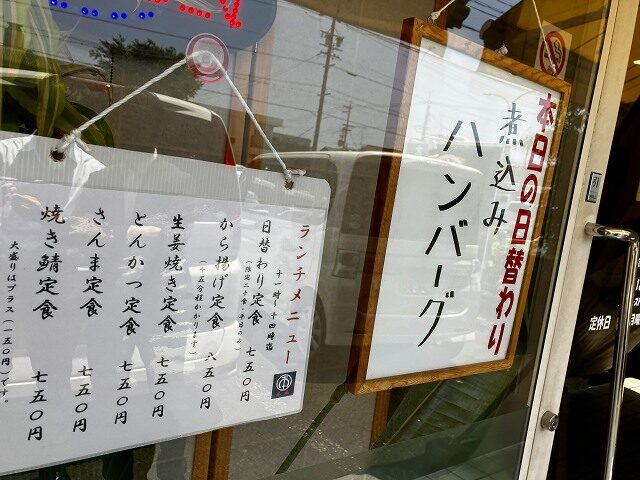 本日の日替わり
煮込み
ハンバーグ
ランチメニュー
十一時〜十四時迄
日替わり定食 七五〇円
(限定二十食・平日のみ)
から揚げ定食 八五〇円
(十五分程かかります)
生姜焼き定食 七五〇円
とんかつ定食 七五〇円
さんま定食 七五〇円
焼き鯖定食 七五〇円
大盛りはプラス(一五〇円)です。
定休日